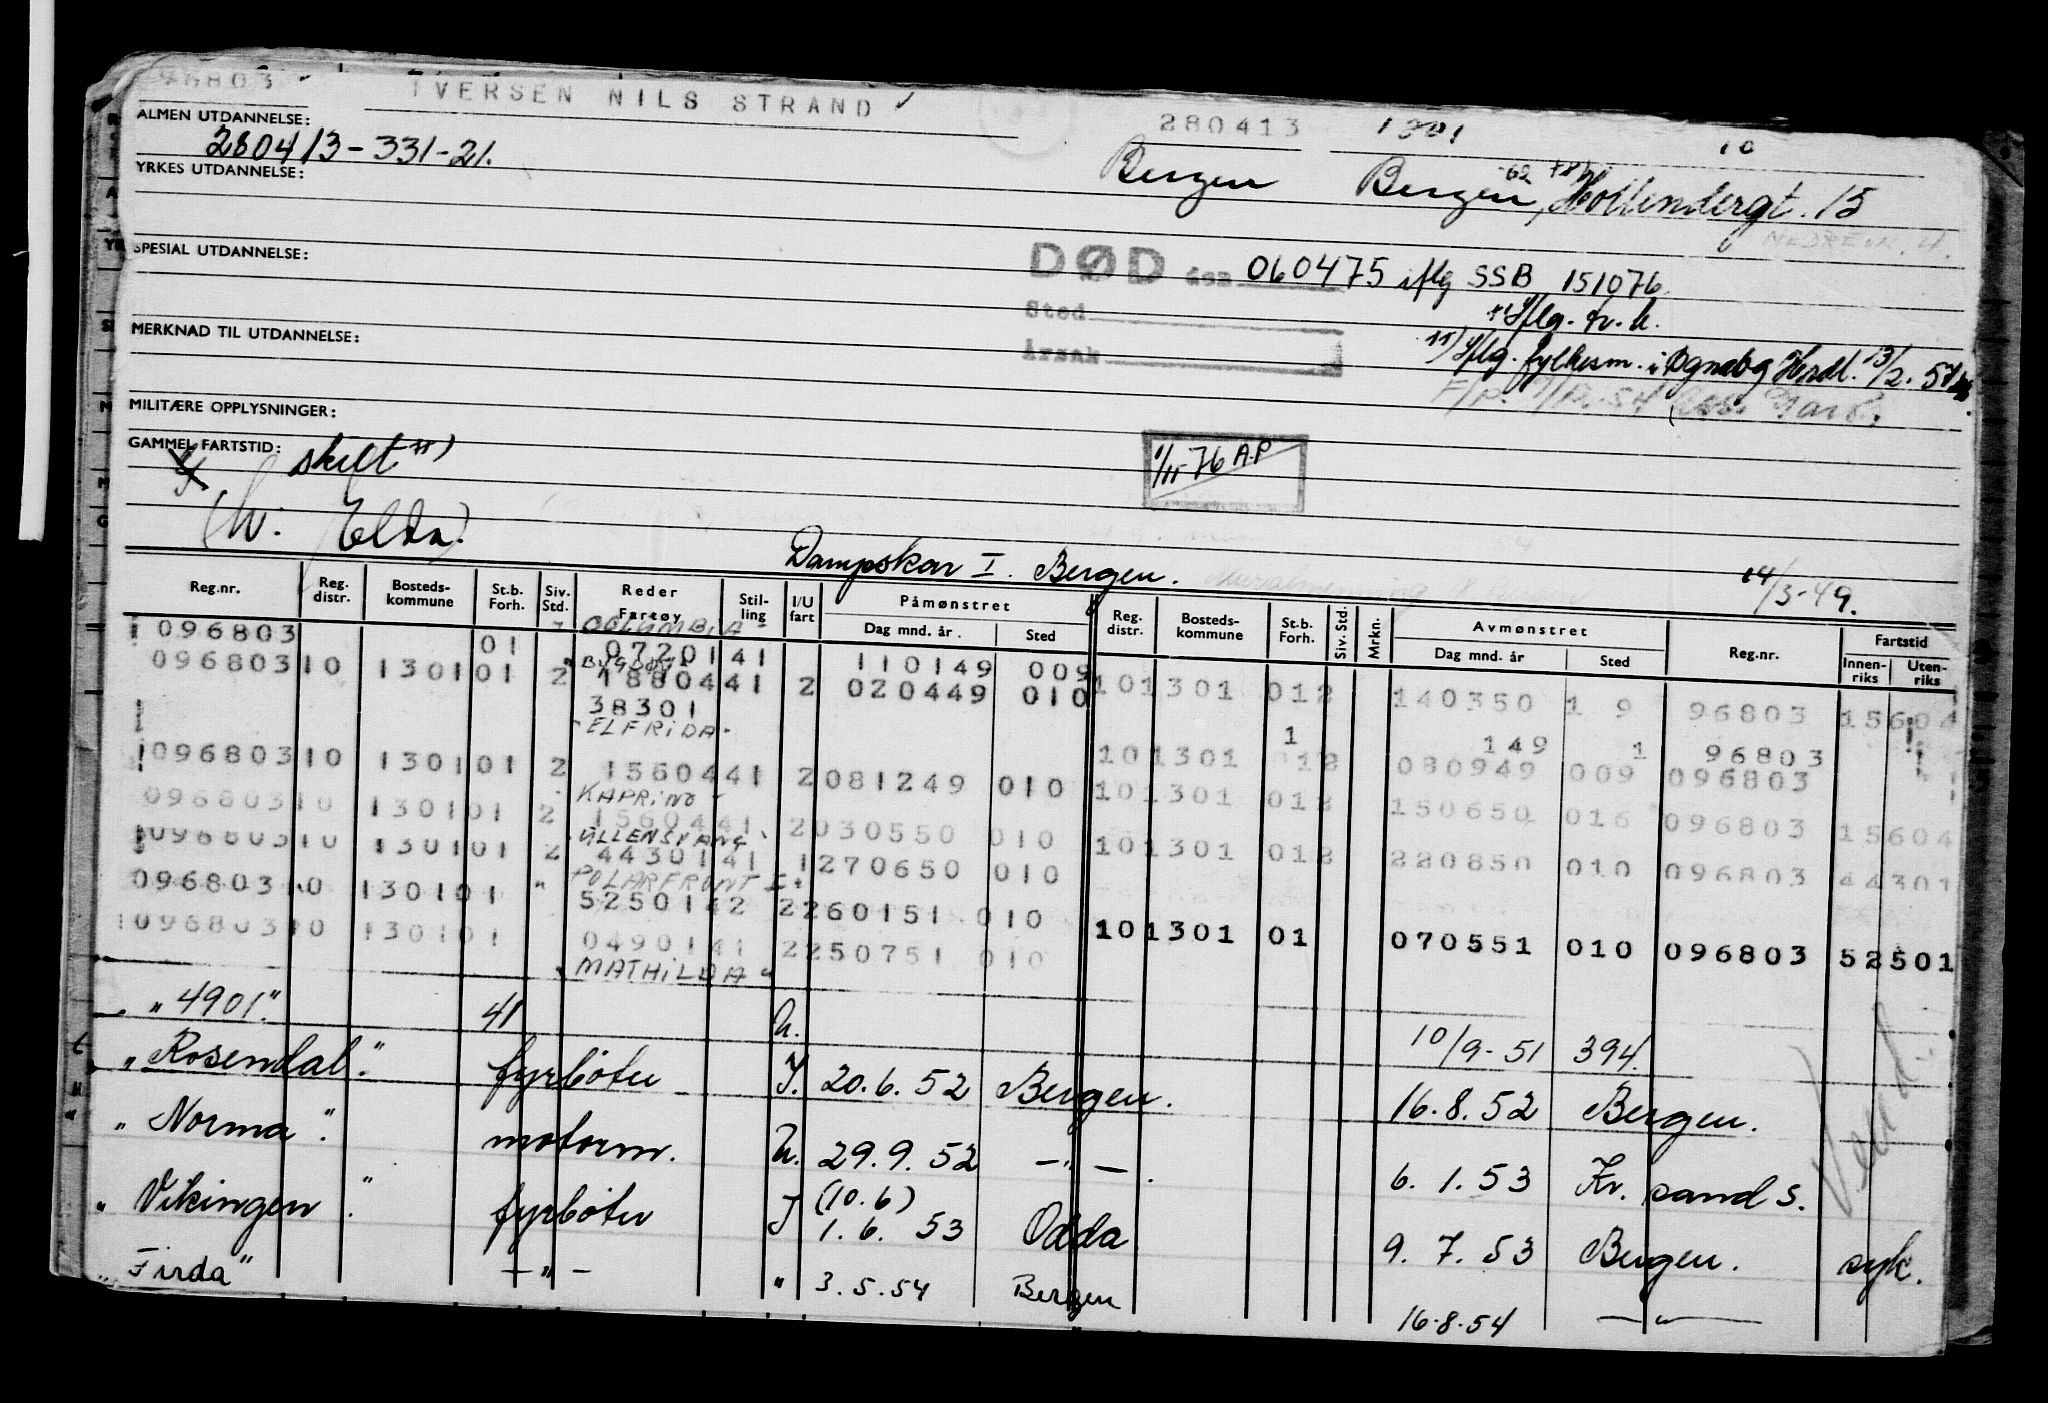 96803 IVERSEN NILS STRAND 280413 1301 10
ALMEN UTDANNELSE:
280413-331-21.
Bergen Bergen, Hollendergt. 15
YRKES UTDANNELSE:
SPESIAL UTDANNELSE:
DØD den 060475 iflg SSB 151076
Sted
Iflg. fr. h.
Årsak
MERKNAD TIL UTDANNELSE:
Iflg. fylkesm. i Hordl. 13/2. 57
MILITÆRE OPPLYSNINGER:
GAMMEL FARTSTID:
skilt
1/11-76 A.P
Dampskar I. Bergen. 14/3-49.
Reg.nr. Reg. distr. Bosteds-kommune St.b. Forh. Siv. Std. Reder Fartøy Stil-ling I/U fart Påmønstret Dag mnd. år. Sted Reg. distr. Bosteds-kommune St.b. Forh. Siv. Std. Mrkn. Avmønstret Dag mnd. år Sted Reg.nr. Fartstid Innen-riks Uten-riks
COLUMBIA
096803 01 0720141 110149 009
BYGDØY
096803 10 1301 01 2 1880441 2 020449 010 10 1301 012 140350 1 9 96803 15604
38301
ELFRIDA
1 149 1 96803
096803 10 1301 01 2 1560441 2 081249 010 10 1301 012 080949 009 096803
KAPRINO
096803 10 1301 01 2 1560441 2 030550 010 10 1301 012 150650 016 096803 15604
ULLENSVANG
096803 10 1301 01 2 4430141 1 270650 010 10 1301 012 220850 010 096803 44301
POLARFRONT I
096803 10 1301 01 5250142 2 260151 010
096803 10 1301 01 0490141 2 250751 010 10 1301 01 070551 010 096803 52501
MATHILDA
"4901." 41 U. 10/9-51 394.
"Rosendal." fyrbøter I. 20.6.52 Bergen. 16.8.52 Bergen.
"Norma". motorm. U. 29.9.52 —"— 6.1.53 Kr. sand S.
"Vikingen". fyrbøter I (10.6) 1.6.53 Odda 9.7.53 Bergen. syk.
"Firda" —"— " 3.5.54 Bergen 16.8.54 —"—
Vend.